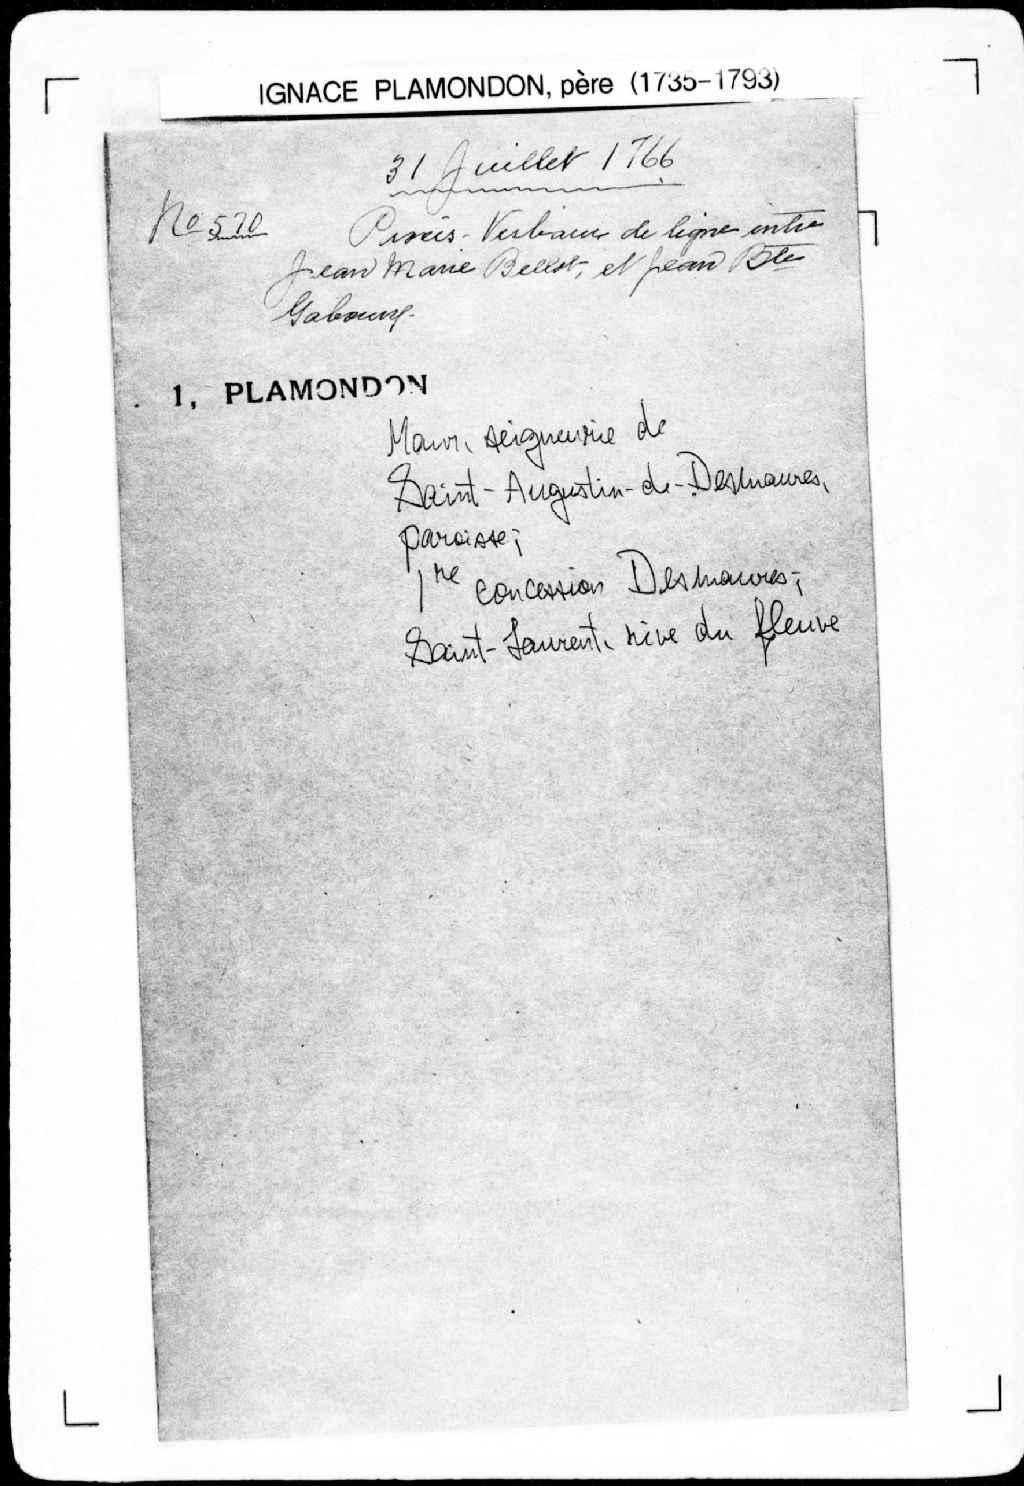 IGNACE PLAMONDON, père (1735-1793)
31 Juillet 1766
No 570 Procès-Verbaux de ligne entre
Jean Marie Bellot, et Jean Bte
Gaboury.
1, PLAMONDON
Maur, seigneurie de
Saint-Augustin-de-Desmaures,
paroisse;
1re concession Desmaures;
Saint-Laurent, rive du fleuve